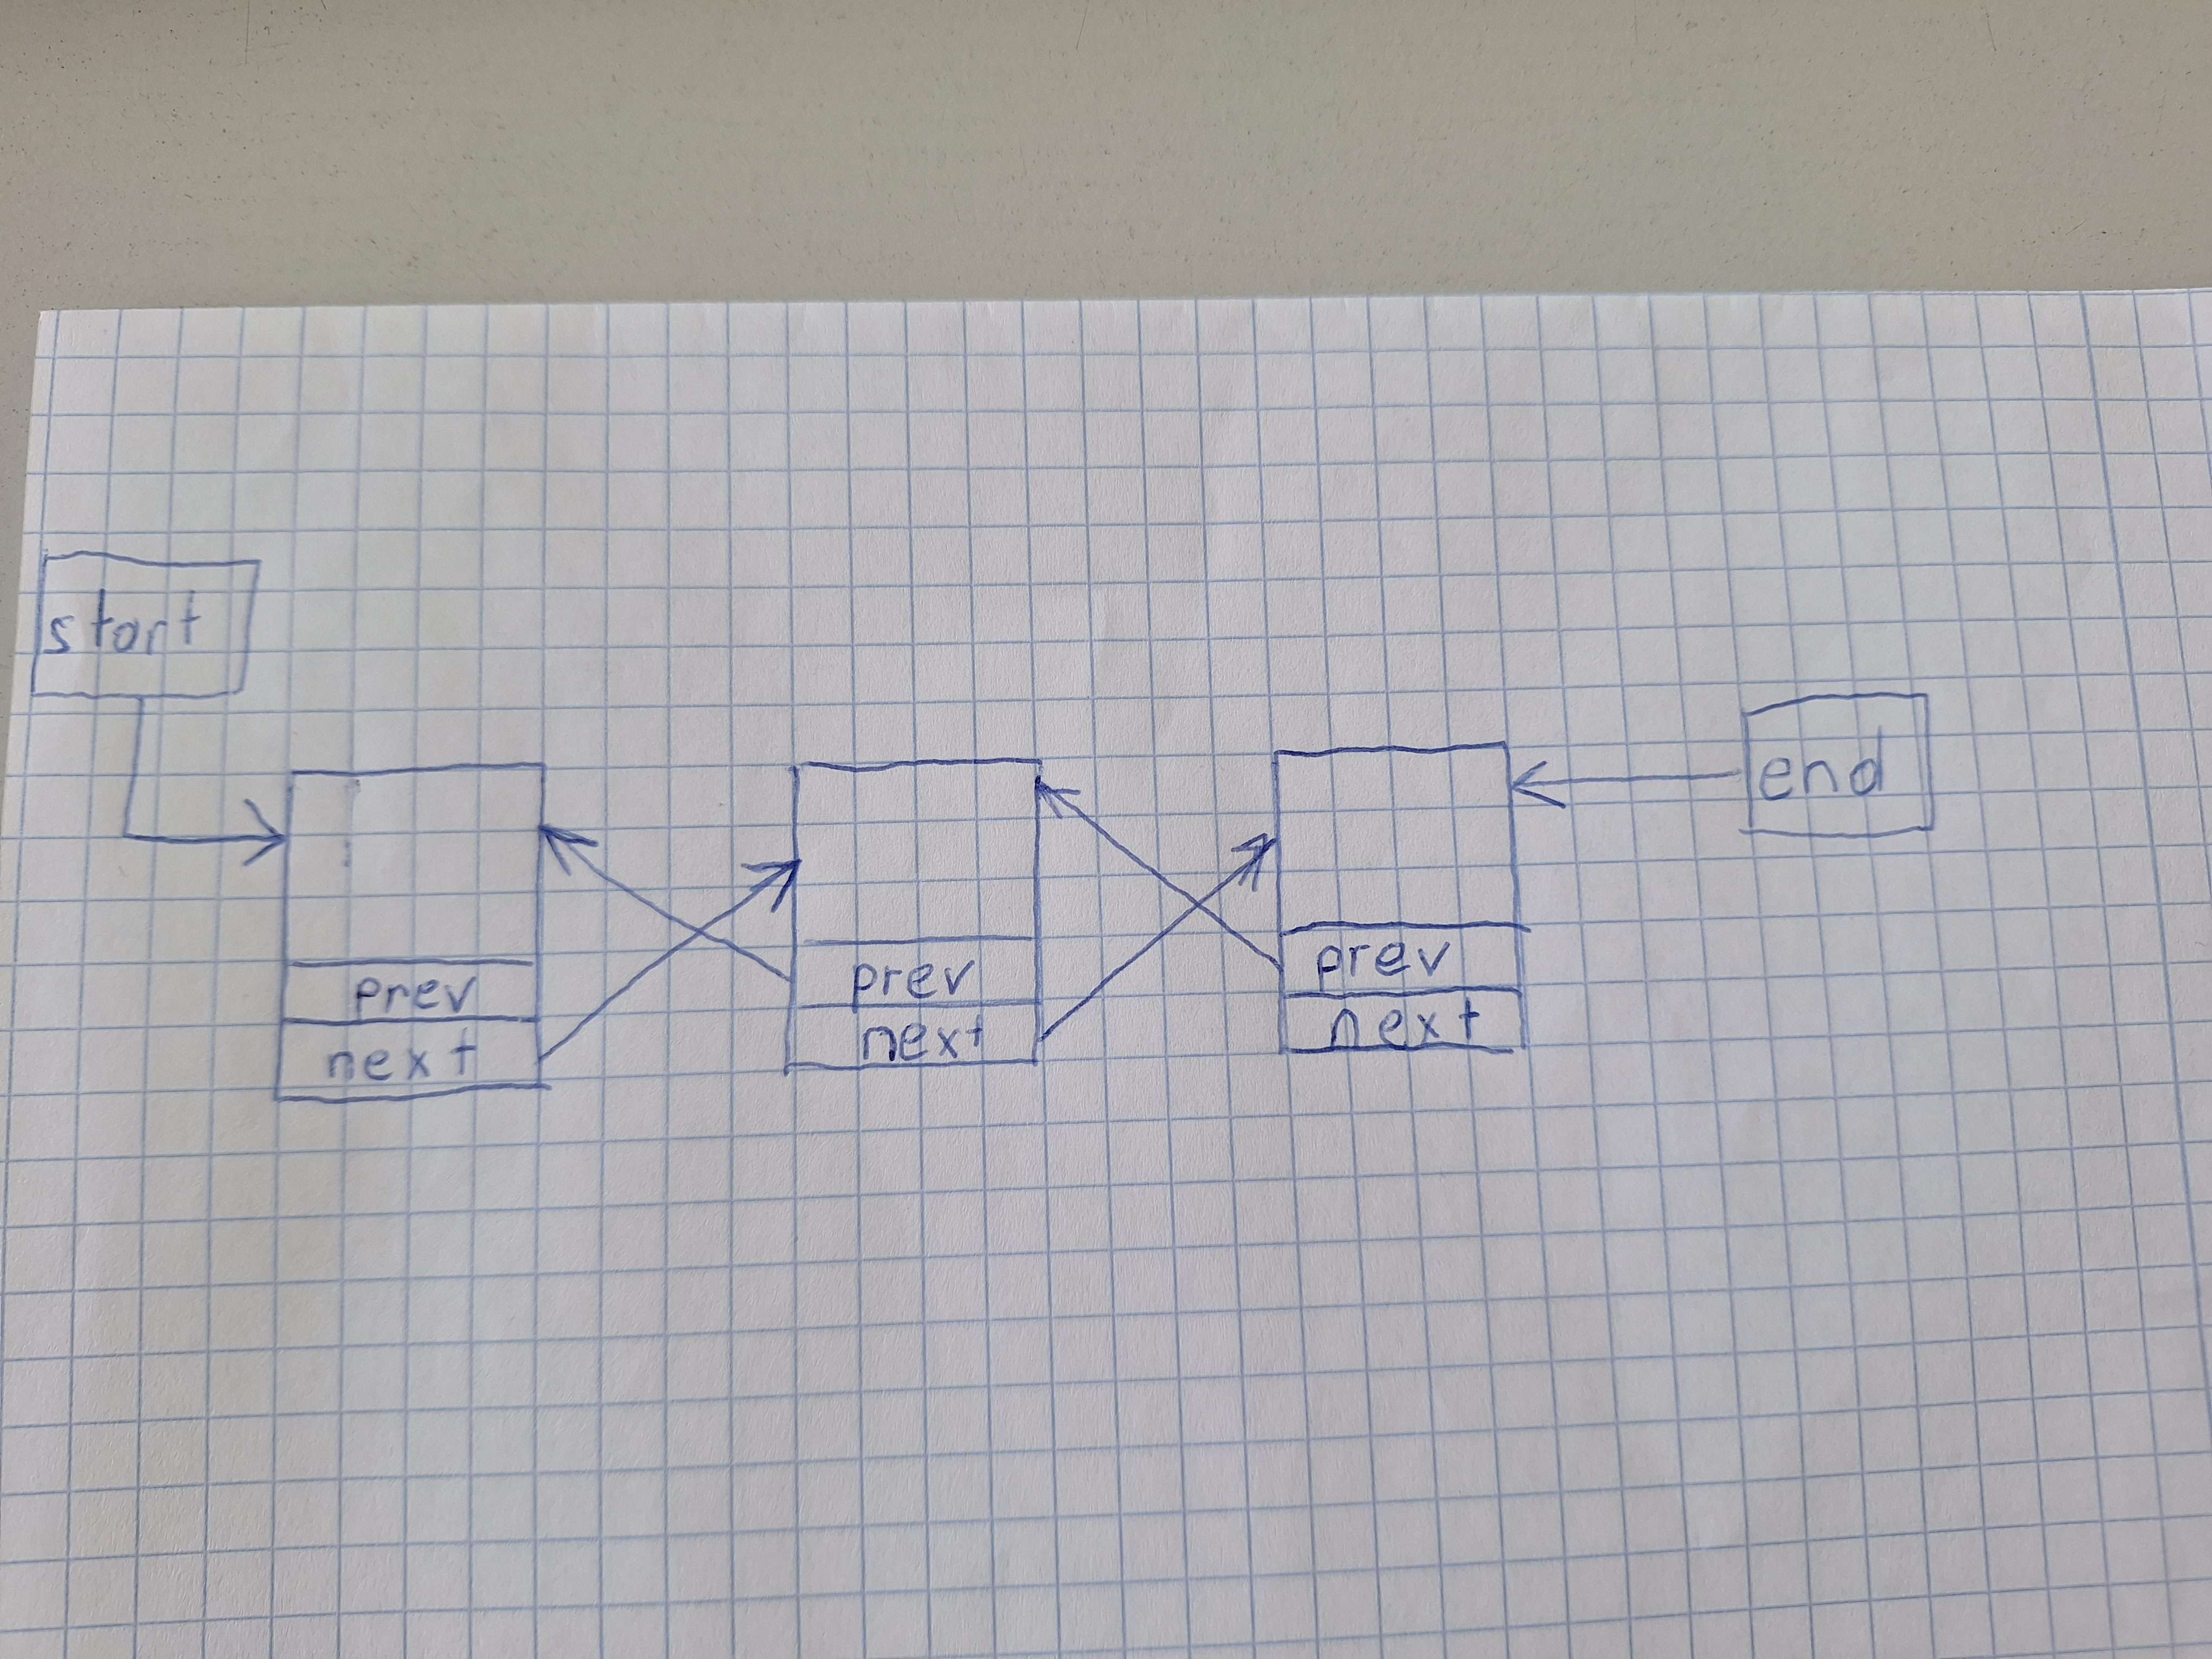 start
end
prev
next
prev
next
prev
next